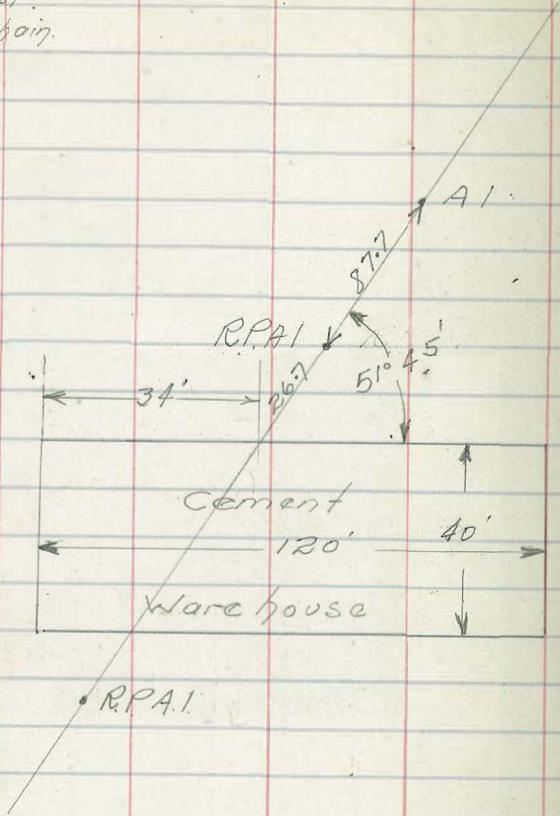 hain.
A1
87.7
R.P.A1
51° 4.5'
34'
26.7
Cement
120'
40'
Warehouse
R.P.A.1.